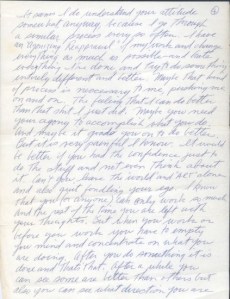 5
toume. I do understand your attitude
somewhat anyway, because I go through
a similar process every so often. I have
an agonizing Reappraisal of my work and change
everything as much as possible = and hate
everything I've done, and try to do something
entirely different and better. Maybe that kind
of process is necessary to me, pushing me
on and on. The feeling that I can do better
than that shit I just did. Maybe you need
your agony to accomplish what you do.
And maybe it goads you on to do better.
But it is very painful I know. It would
be better if you had the confidence just to
do the stuff and not even think about
it. Can't you leave the world and ART alone
and also quit fondling your ego. I know
that you (or anyone) can only work so much
and the rest of the time you are left with
your thoughts. But when you work or
before your work you have to empty
you mind and concentrate on what you
are doing. After you do something it is
done and that's that. After a while you
can see some are better than others but
also you can see what direction you are